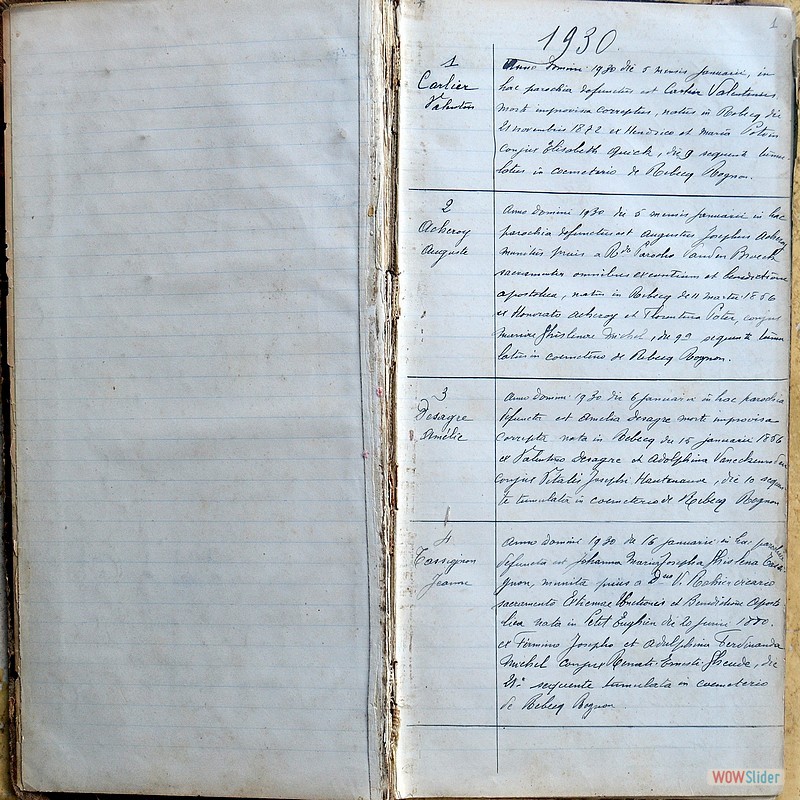 1
1930.
1
Carlier
Valentin
Anno domini 1930 die 5 mensis Januarii, in
hac parochia defunctus est Carlier Valentinus
morte improvisa correptus, natus in Rebecq die
21 novembris 1872 ex Henrico et Maria Potvin
conjux Elisabeth Quick, die 9 sequenti tumu-
latus in coemeterio de Rebecq Rognon.
2
Acheroy
Auguste
Anno domini 1930 die 5 mensis Januarii in hac
parochia defunctus est Augustus Josephus Acheroy
munitus prius a Rdo Parocho Vanden Broeck
sacramentis omnibus exeuntium et benedictione
apostolica, natus in Rebecq die 11 martii 1856
ex Honorato Acheroy et Florentina Pater, conjux
Mariae Ghislenae Michel, die 9a sequenti tumu
latus in coemeterio de Rebecq Rognon.
3
Desagre
Amélie
Anno domini 1930 die 6 januarii in hac parochia
defuncta est Amelia Desagre morte improvisa
correpta nata in Rebecq die 15 januarii 1856
ex Valentino Desagre et Adolphina
conjux Vitalis Josephi Hautenauve, die 10 sequen
te tumulata in coemeterio de Rebecq Rognon
4
Tassignon
Jeanne
Anno domini 1930 die 16 januarii in hac parochia
defuncta est Johanna Maria Josepha Ghislena Tassi-
gnon, munita prius a Dno V. Rohier vicario
sacramento Extremae Unctionis et Benedictione Aposto
lica nata in Petit Enghien die 20 junii 1880.
ex Firmino Josepho et Adolphina Ferdinanda
Michel conjux Renati Ernesti Gheude, die
21a sequente tumulata in coemeterio
de Rebecq Rognon.
WOWSlider